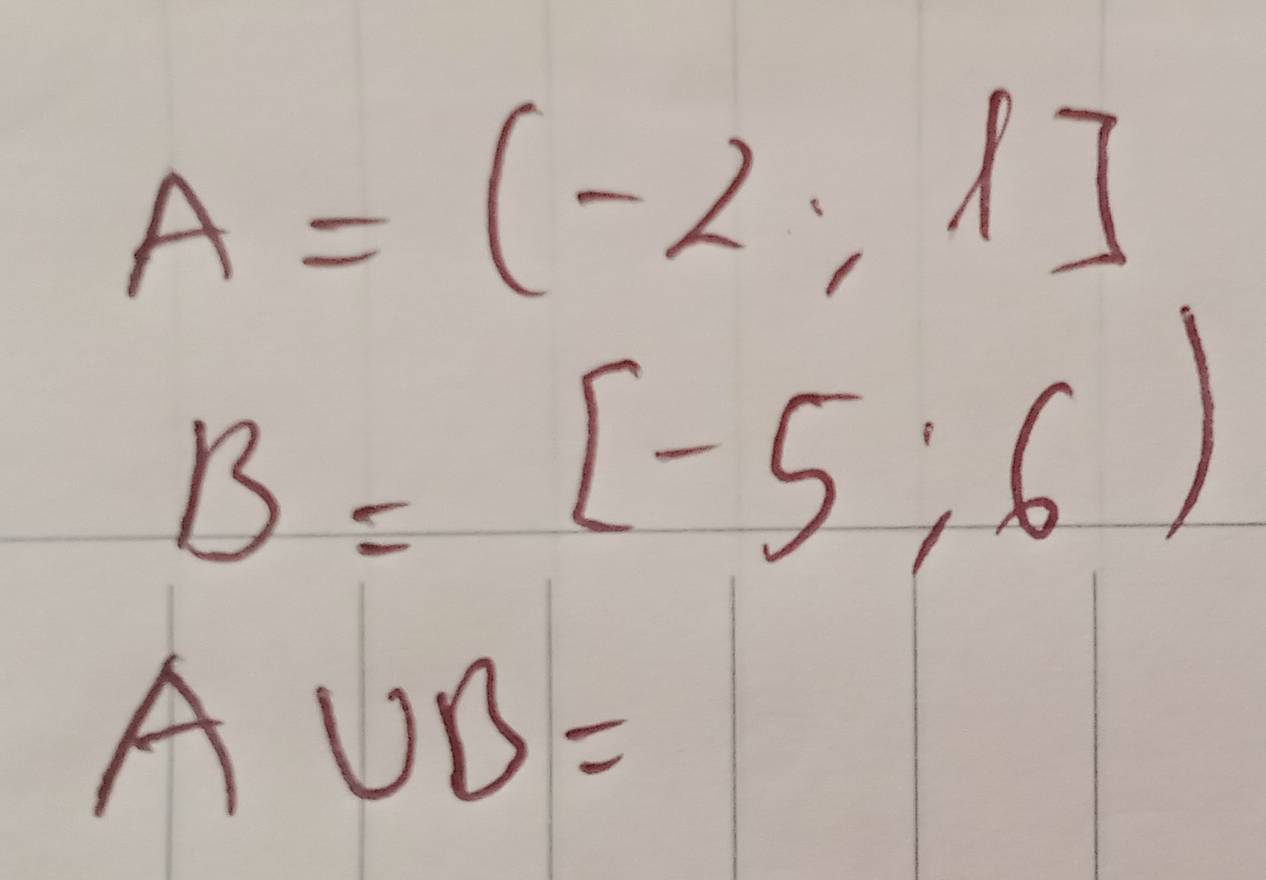 A = (-2; 1]
B = [-5; 6)
A ∪ B =